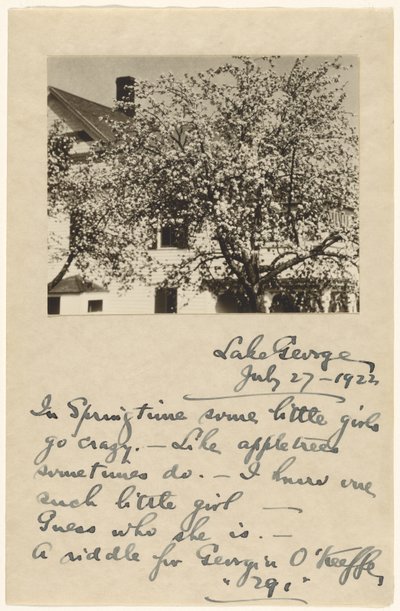 Lake George
July 27-1922
In Springtime some little girls
go crazy. - Like appletrees
sometimes do. - I know one
such little girl —
Guess who she is. —
A riddle for Georgia O'Keeffe,
"291"